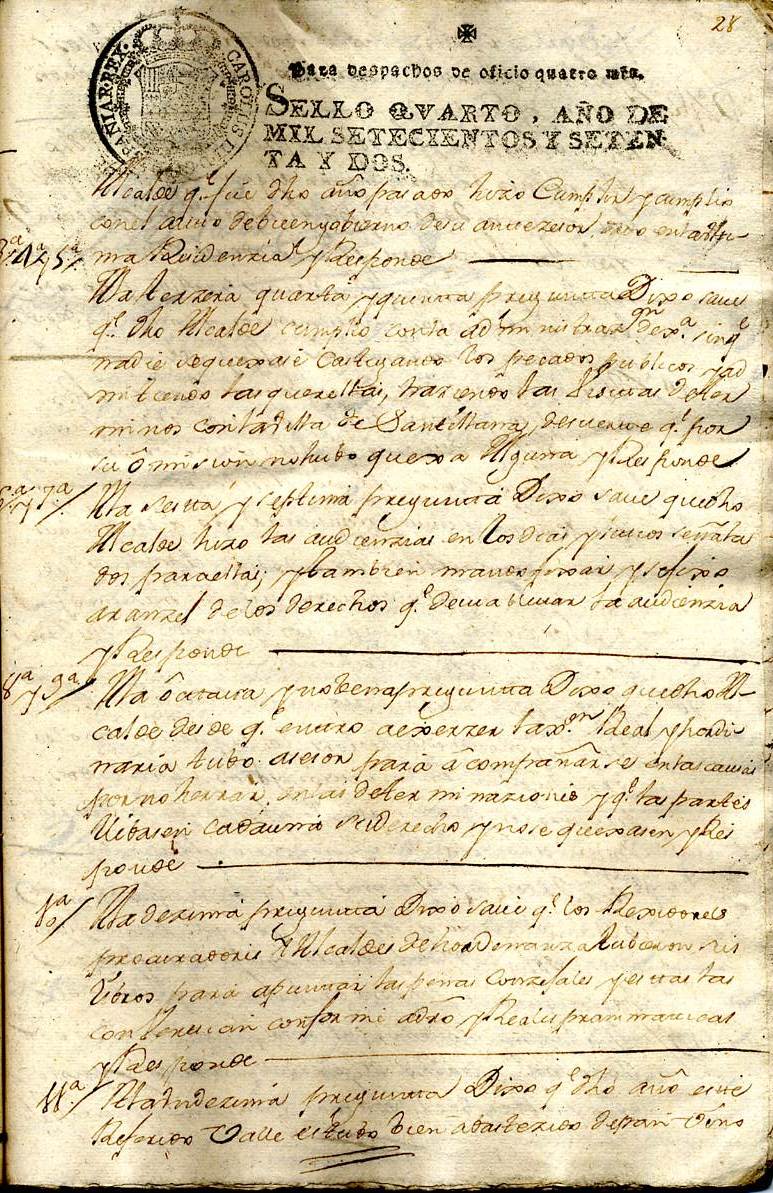 28
CAROLUS III
HISPANIAR. REX.
Para despachos de oficio quatro mrs.
SELLO QVARTO, AÑO DE
MIL SETECIENTOS Y SETEN-
TA Y DOS.
Alcalde q.e fue dho año pasado hizo Cumplir y cumplio
con el auto de buen gobierno de su antezesor, dado en la ulti-
ma Residenzia y Responde
3.a 4.a y 5.a
A la terzera quarta y quinta pregunta Dixo save
q.e dho Alcalde cumplio con la administraz.on de x.a sin q.e
nadie se quexase castigando los pecados publicos y ad
mitiendo las querellas, haziendo las visitas de ter
minos con la villa de Santillana, de suerte q.e por
su omision no hubo quexa Alguna y Responde
6.a y 7.a
A la sesta y septima pregunta Dixo save que dho
Alcalde hizo las audienzias en los dias y sitios señala
dos para ellas; y tambien mando fixar y se fixo
aranzel de los derechos q.e devia llevar la audienzia
y Responde
8.a y 9.a
A la octava y nobena pregunta Dixo que dho Al-
calde desde q.e entro a exerzer la x.on Real y hordi
naria tubo asesor para acompañarse en las causas
por no herrar en las determinaziones y q.e las partes
tubiesen cada una su derecho y no se quexasen y Res
ponde
10.a
A la dezima pregunta Dixo save q.e los Rexidores
procuradores y Alcaldes de hordenanza tubieron sus
libros para apuntar las penas conzejales y estas las
con forme a dro y Reales prammaticas
y Responde
11.a
A la undezima pregunta Dixo q.e dho año este
Referido Valle estubo bien abastezido de pan vino